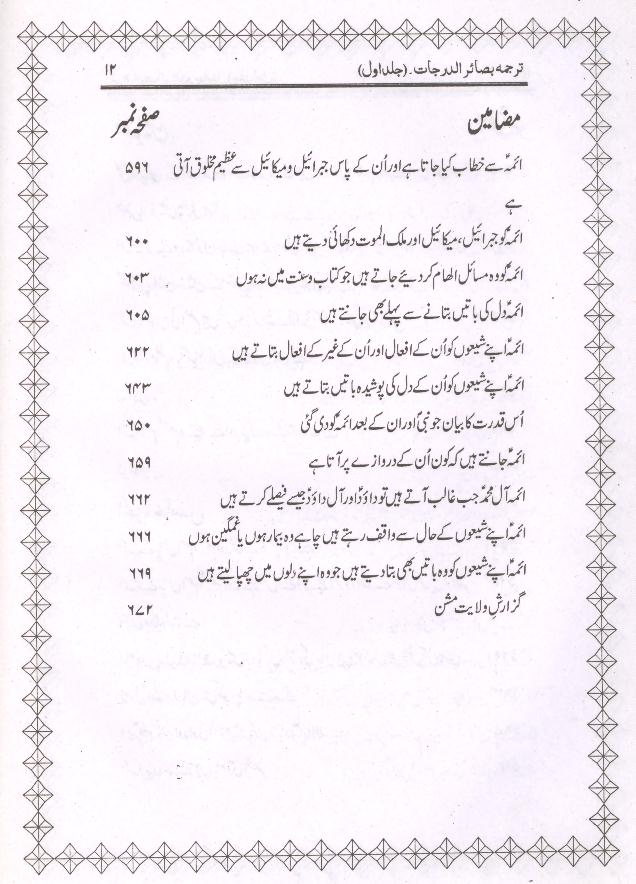 ترجمہ بصائر الدرجات۔(جلد اول) ۱۲
مضامین صفحہ نمبر
ائمہؑ سے خطاب کیا جاتا ہے اور اُن کے پاس جبرائیل و میکائیل سے عظیم مخلوق آتی ۵۹۶
ہے
ائمہؑ کو جبرائیل، میکائیل اور ملک الموت دکھائی دیتے ہیں ۶۰۰
ائمہؑ کو وہ مسائل الھام کر دیئے جاتے ہیں جو کتاب و سنت میں نہ ہوں ۶۰۳
ائمہؑ دل کی باتیں بتانے سے پہلے بھی جانتے ہیں ۶۰۵
ائمہؑ اپنے شیعوں کو اُن کے افعال اور اُن کے غیر کے افعال بتاتے ہیں ۶۲۲
ائمہؑ اپنے شیعوں کو اُن کے دل کی پوشیدہ باتیں بتاتے ہیں ۶۴۳
اُس قدرت کا بیان جو نبیؐ اور ان کے بعد ائمہؑ کو دی گئی ۶۵۰
ائمہؑ جانتے ہیں کہ کون اُن کے دروازے پر آتا ہے ۶۵۹
ائمہؑ آل محمدؐ جب غالب آتے ہیں تو داؤدؑ اور آل داؤدؑ جیسے فیصلے کرتے ہیں ۶۶۲
ائمہؑ اپنے شیعوں کے حال سے واقف رہتے ہیں چاہے وہ بیمار ہوں یا غمگین ہوں ۶۶۶
ائمہؑ اپنے شیعوں کو وہ باتیں بھی بتا دیتے ہیں جو وہ اپنے دلوں میں چھپا لیتے ہیں ۶۶۹
گزارشِ ولایت مشن ۶۷۲